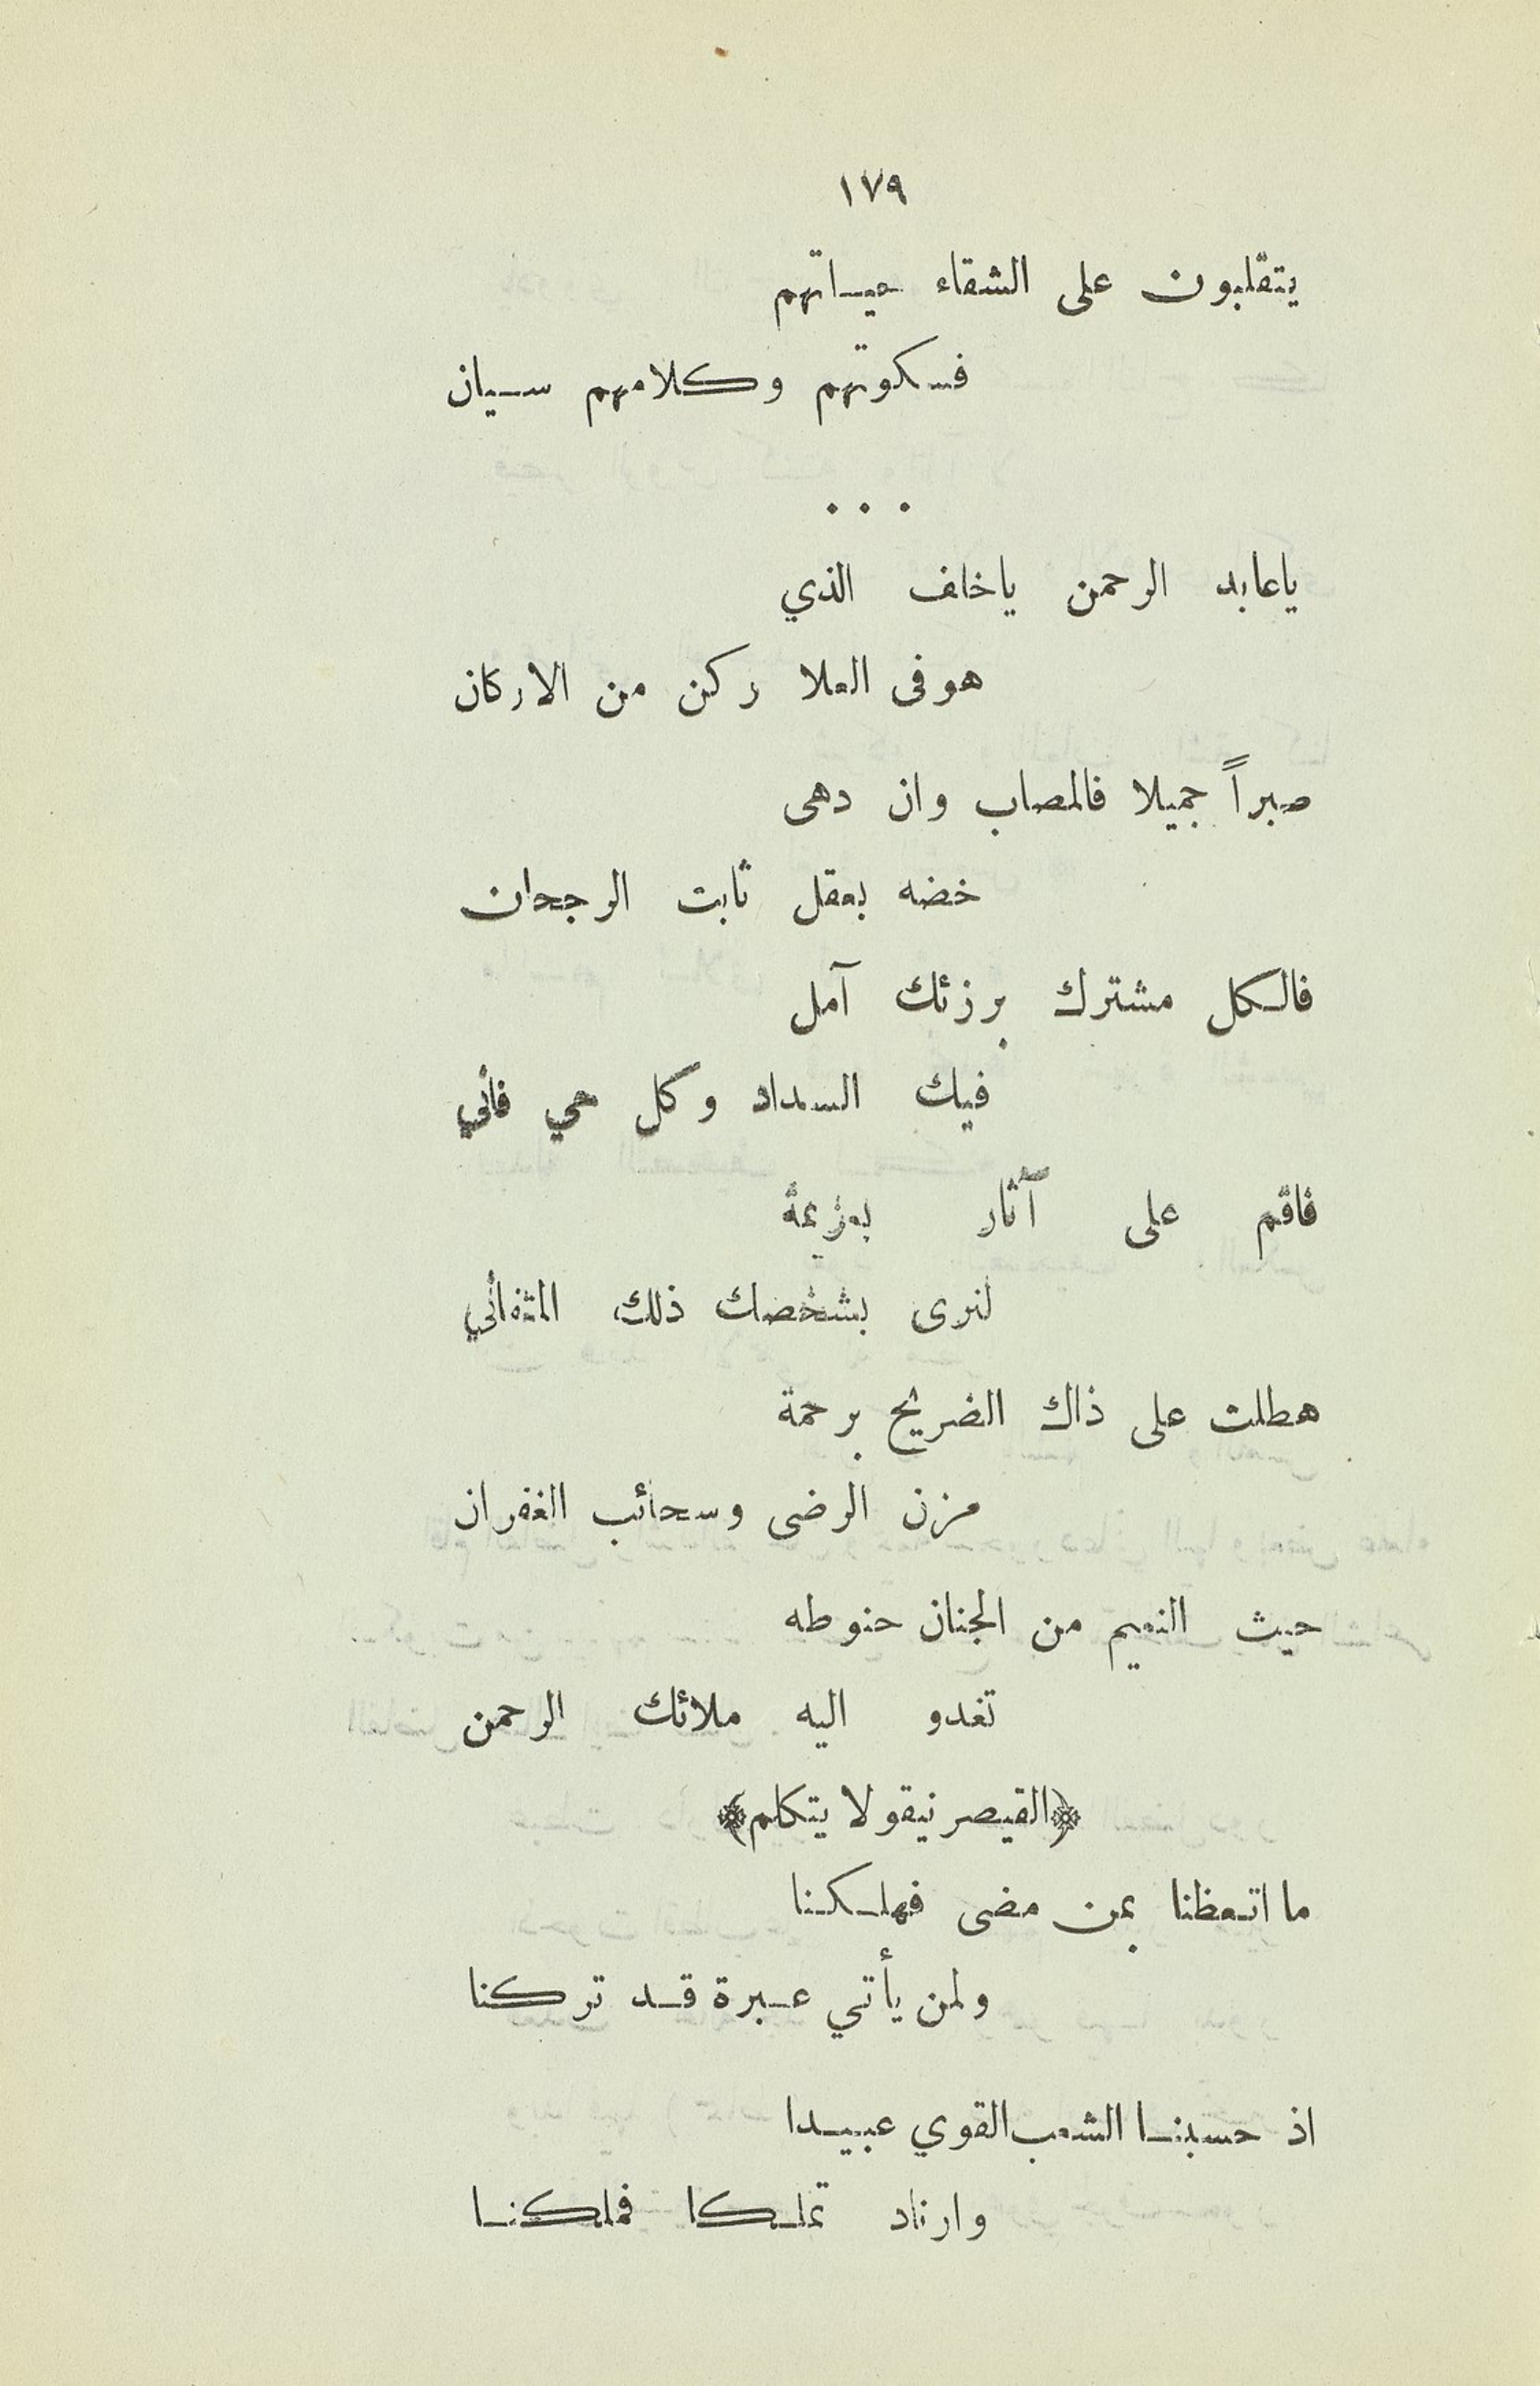 ١٧٩
يتقلبون على الشقاء حياتهم
فسكوتهم وكلامهم سيان
. . .
ياعابد الرحمن ياخلف الذي
هوفى العلا ركن من الاركان
صبراً جميلا فالمصاب وان دهى
خضه بعقل ثابت الرجحان
فالكل مشترك برزئك آمل
فيك السداد وكل حي فاني
فاقم على آثار بعزيمة
لنرى بشخصك ذلك المتفاني
هطلت على ذاك الضريح برحمة
مزن الرضى وسحائب الغفران
حيث النعيم من الجنان حنوطه
تغدو اليه ملائك الرحمن
﴿القيصر نيقولا يتكلم﴾
ما اتعظنا بمن مضى فهلكنا
ولمن يأتي عبرة قد تركنا
اذ حسبنا الشعب القوي عبيدا
وارتاد تملكا فملكنا